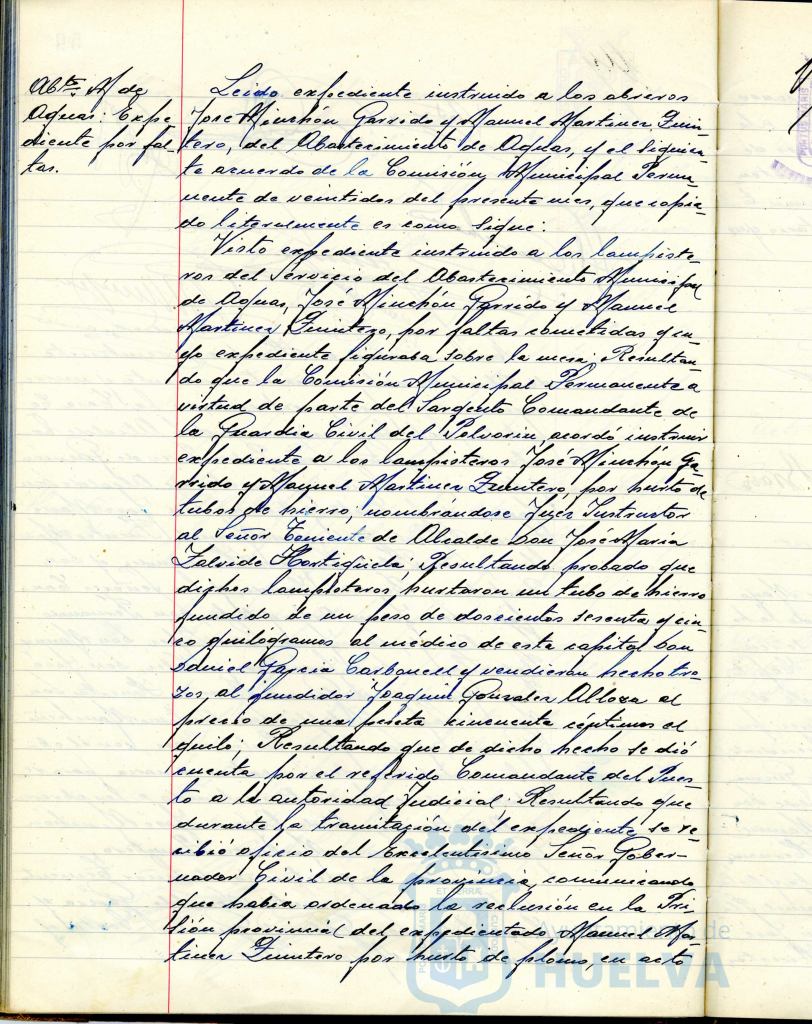 Abtº M. de
Aguas: Expe-
diente por fal-
tas.
Leido expediente instruido a los obreros
José Minchón Garrido y Manuel Martinez Quin-
tero, del Abastecimiento de Aguas, y el siguien-
te acuerdo de la Comisión Municipal Perma-
nente de veintidos del presente mes, que copia-
do literalmente es como sigue:
Visto expediente instruido a los lampiste-
ros del Servicio del Abastecimiento Municipal
de Aguas, José Minchón Garrido y Manuel
Martinez Quintero, por faltas cometidas y cu-
yo expediente figuraba sobre la mesa; Resultan-
do que la Comisión Municipal Permanente a
virtud de parte del Sargento Comandante de
la Guardia Civil del Polvorin, acordó instruir
expediente a los lampisteros José Minchón Ga-
rrido y Manuel Martinez Quintero, por hurto de
tubos de hierro, nombrándose Juez Instructor
al Señor Teniente de Alcalde Don José Maria
Zalvide Hortigüela; Resultando probado que
dichos lampisteros hurtaron un tubo de hierro
fundido de un peso de doscientos sesenta y cin-
co quilógramos al médico de esta capital Don
Daniel Garcia Carbonell y vendieron hecho tro-
zos, al fundidor Joaquin Gonzalez Alloza al
precio de una peseta cincuenta céntimos el
quilo; Resultando que de dicho hecho se dió
cuenta por el referido Comandante del Pues-
to a la autoridad Judicial; Resultando que
durante la tramitación del expediente se re-
cibió oficio del Excelentisimo Señor Gober-
nador Civil de la provincia, comunicando
que habia ordenado la reclusión en la Pri-
sión provincial del expedientado Manuel Mar-
tinez Quintero por hurto de plomo, en acto
Ayuntamiento de
HUELVA